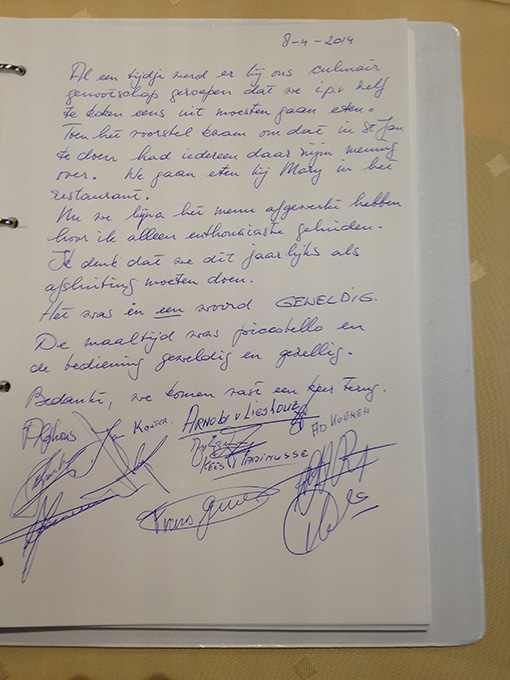 8-4-2014
Al een tijdje werd er bij ons culinair
genootschap geroepen dat we i.p.v zelf
te koken eens uit moesten gaan eten.
Toen het voorstel kwam om dat in St Jan
te doen had iedereen daar zijn mening
over. We gaan eten bij Mary in het
restaurant.
Nu we bijna het menu afgewerkt hebben
hoor ik alleen enthousiaste geluiden.
Ik denk dat we dit jaarlijks als
afsluiting moeten doen.
Het was in een woord GEWELDIG.
De maaltijd was piccobello en
de bediening geweldig en gezellig.
Bedankt, we komen vast een keer terug.
ARNOLD v LIESHOUT
AD KOENEN
KEES MARINUSSE
Frans